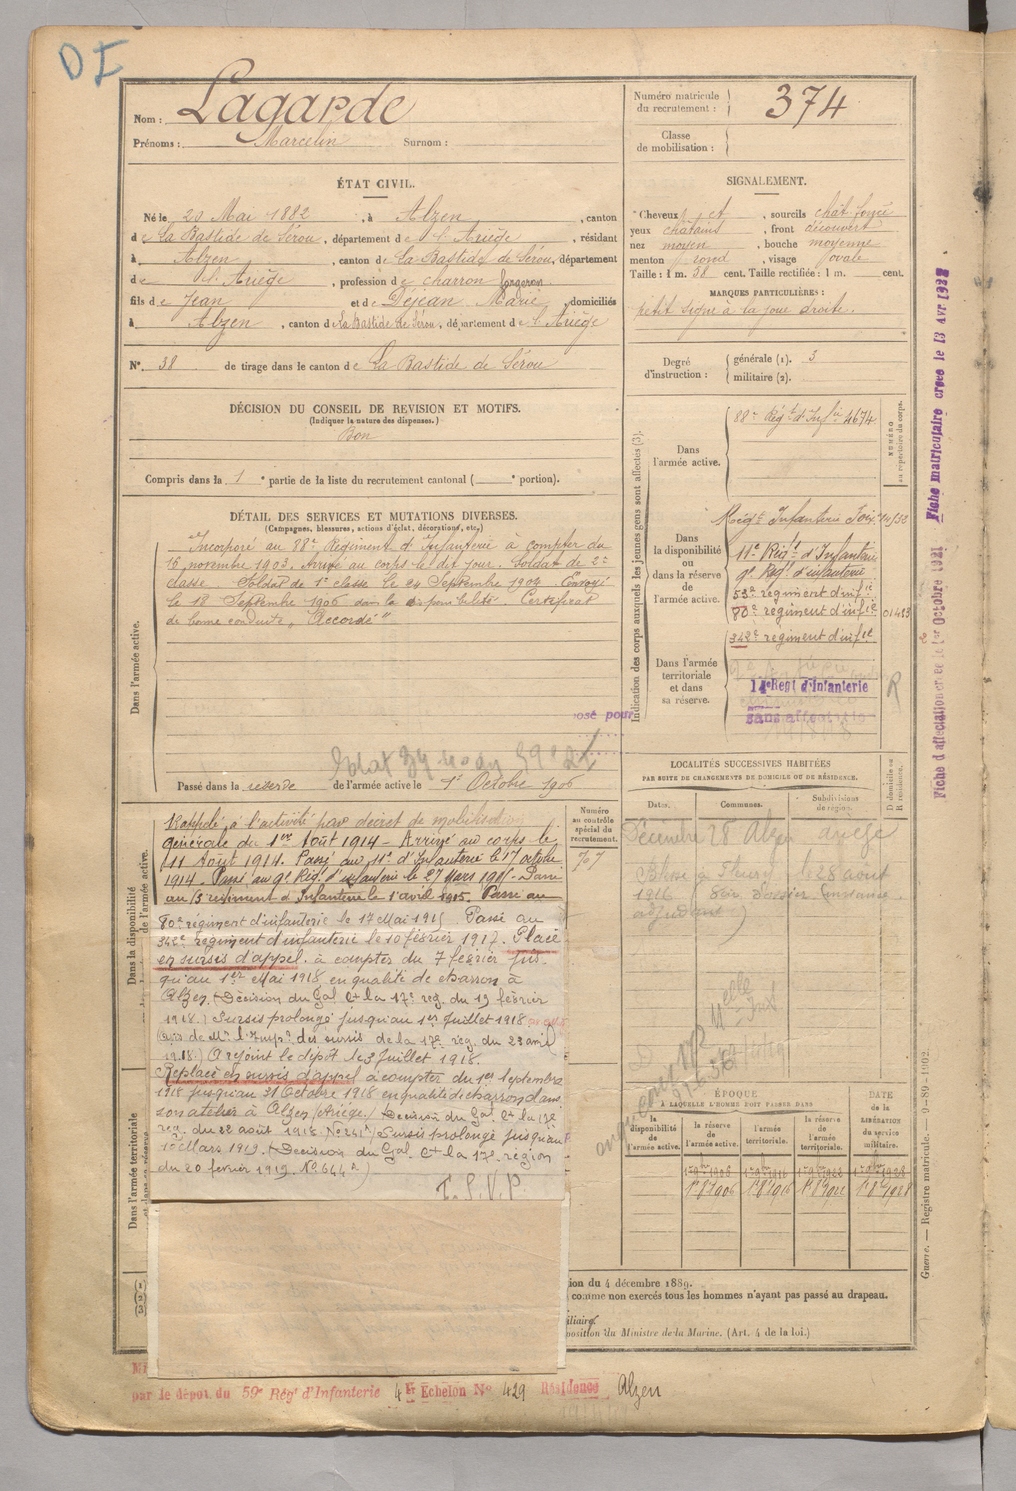 D I
Nom : Lagarde
Prénoms : Marcelin Surnom :
Numéro matricule
du recrutement : 374
Classe
de mobilisation :
ÉTAT CIVIL.
Né le 20 Mai 1882, à Alzen, canton
de La Bastide de Sérou, département de l'Ariège, résidant
à Alzen, canton de La Bastide de Sérou, département
de l'Ariège, profession de charron forgeron
fils de Jean et de Dejean Marie, domiciliés
à Alzen, canton de La Bastide de Sérou, département de l'Ariège
N° 38 de tirage dans le canton de La Bastide de Sérou
SIGNALEMENT.
Cheveux et, sourcils chât foncé
yeux châtains, front découvert
nez moyen, bouche moyenne
menton rond, visage ovale
Taille : 1 m. 58 cent. Taille rectifiée : 1 m. cent.
MARQUES PARTICULIÈRES :
petit signe à la joue droite.
Degré
d'instruction :
générale (1). 3
militaire (2).
DÉCISION DU CONSEIL DE REVISION ET MOTIFS.
(Indiquer la nature des dispenses.)
Bon
Compris dans la 1e partie de la liste du recrutement cantonal ( e portion).
DÉTAIL DES SERVICES ET MUTATIONS DIVERSES.
(Campagnes, blessures, actions d'éclat, décorations, etc.)
Dans l'armée active.
Incorporé au 88e Régiment d'Infanterie à compter du
16 novembre 1903. Arrivé au corps le dit jour. Soldat de 2e
classe. Soldat de 1e classe le 24 Septembre 1904. Envoyé
le 18 Septembre 1906 dans la disponibilité. Certificat
de bonne conduite "Accordé"
osé pour
Passé dans la réserve de l'armée active le 1er Octobre 1906
Indication des corps auxquels les jeunes gens sont affectés (3).
NUMÉRO
au répertoire du corps.
Dans
l'armée active.
88e Régt d'Infie 4674
Dans
la disponibilité
ou
dans la réserve
de
l'armée active.
Régt Infanterie Foix
11e Régt d'Infanterie
9e Régt d'infanterie
53e régiment d'infie
80e régiment d'infie 01483
Dans l'armée
territoriale
et dans
sa réserve.
342e régiment d'infie
14e Regt d'Infanterie
sans affectation
R
Fiche d'affectation créée le 1er Octobre 1921
Fiche matriculaire créée le 13 Avr 1928
Dans la disponibilité
de l'armée active.
Rappelé à l'activité par décret de mobilisation
générale du 1er Août 1914 - Arrivé au corps le
11 Août 1914. Passé au 11e d'Infanterie le 17 octobre
1914. Passé au 9e Rég. d'infanterie le 27 Mars 1915 - Passé
au régiment d'Infanterie le 1 avril 1915. Passé au
80e régiment d'infanterie le 17 Mai 1915. Passé au
342e régiment d'infanterie le 10 février 1917. Placé
en sursis d'appel, à compter du 7 février jus-
qu'au 1er Mai 1918 en qualité de charron à
Alzen (Décision du Gal Ct la 17e rég. du 19 février
1918.) Sursis prolongé jusqu'au 1er Juillet 1918
(avis de Mr l'Inspr des sursis de la 17e rég. du 23 avril
1918.) A rejoint le dépôt le 3 Juillet 1918.
Replacé en sursis d'appel à compter du 1er Septembre
1918 jusqu'au 31 Octobre 1918 en qualité de charron dans
son atelier à Alzen (Ariège) Décision du Gal Ct la 17e
rég. du 22 août 1918 Sursis prolongé jusqu'au
Mars 1919. (Décision du Gal Ct la 17e région
du 20 février 1919. N° 644)
T. S. V. P.
Numéro
au contrôle
spécial du
recrutement.
707
LOCALITÉS SUCCESSIVES HABITÉES
PAR SUITE DE CHANGEMENTS DE DOMICILE OU DE RÉSIDENCE.
D domicile ou
R résidence.
Dates. Communes. Subdivisions
de région.
Décembre 28 Alzen Ariège
Blessé à Fleury le 28 août
1916
ÉPOQUE
À LAQUELLE L'HOMME DOIT PASSER DANS
la
disponibilité
de
l'armée active.
la réserve
de
l'armée active.
l'armée
territoriale.
la réserve
de
l'armée
territoriale.
DATE
de la
LIBÉRATION
du service
militaire.
1er 8bre 1906 1er 8bre 1916 1er 8bre 1922 1er 8bre 1928
Dans l'armée territoriale
et dans sa réserve
(1)
(2)
(3)
ion du 4 décembre 1889.
comme non exercés tous les hommes n'ayant pas passé au drapeau.
iliaire.
position du Ministre de la Marine. (Art. 4 de la loi.)
Guerre. — Registre matricule. — 9-89-1902.
par le dépôt du 59e Régt d'Infanterie 4 Echelon N° 429 Résidence Alzen